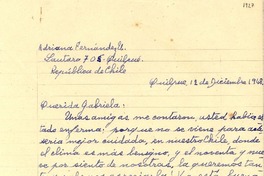 Adriana Fernández
Lautaro 705 - Quilpue
República de Chile
Quilpue, 12 Diciembre 194
Querida Gabriela:
Unas amigas me contaron, usted había es
tado enferma? porque no se viene para acá
sería mejor cuidado, en nuestro Chile, donde
el clima es más benigno, y el noventa y nue
ve por siento de nosotras, la queremos tan